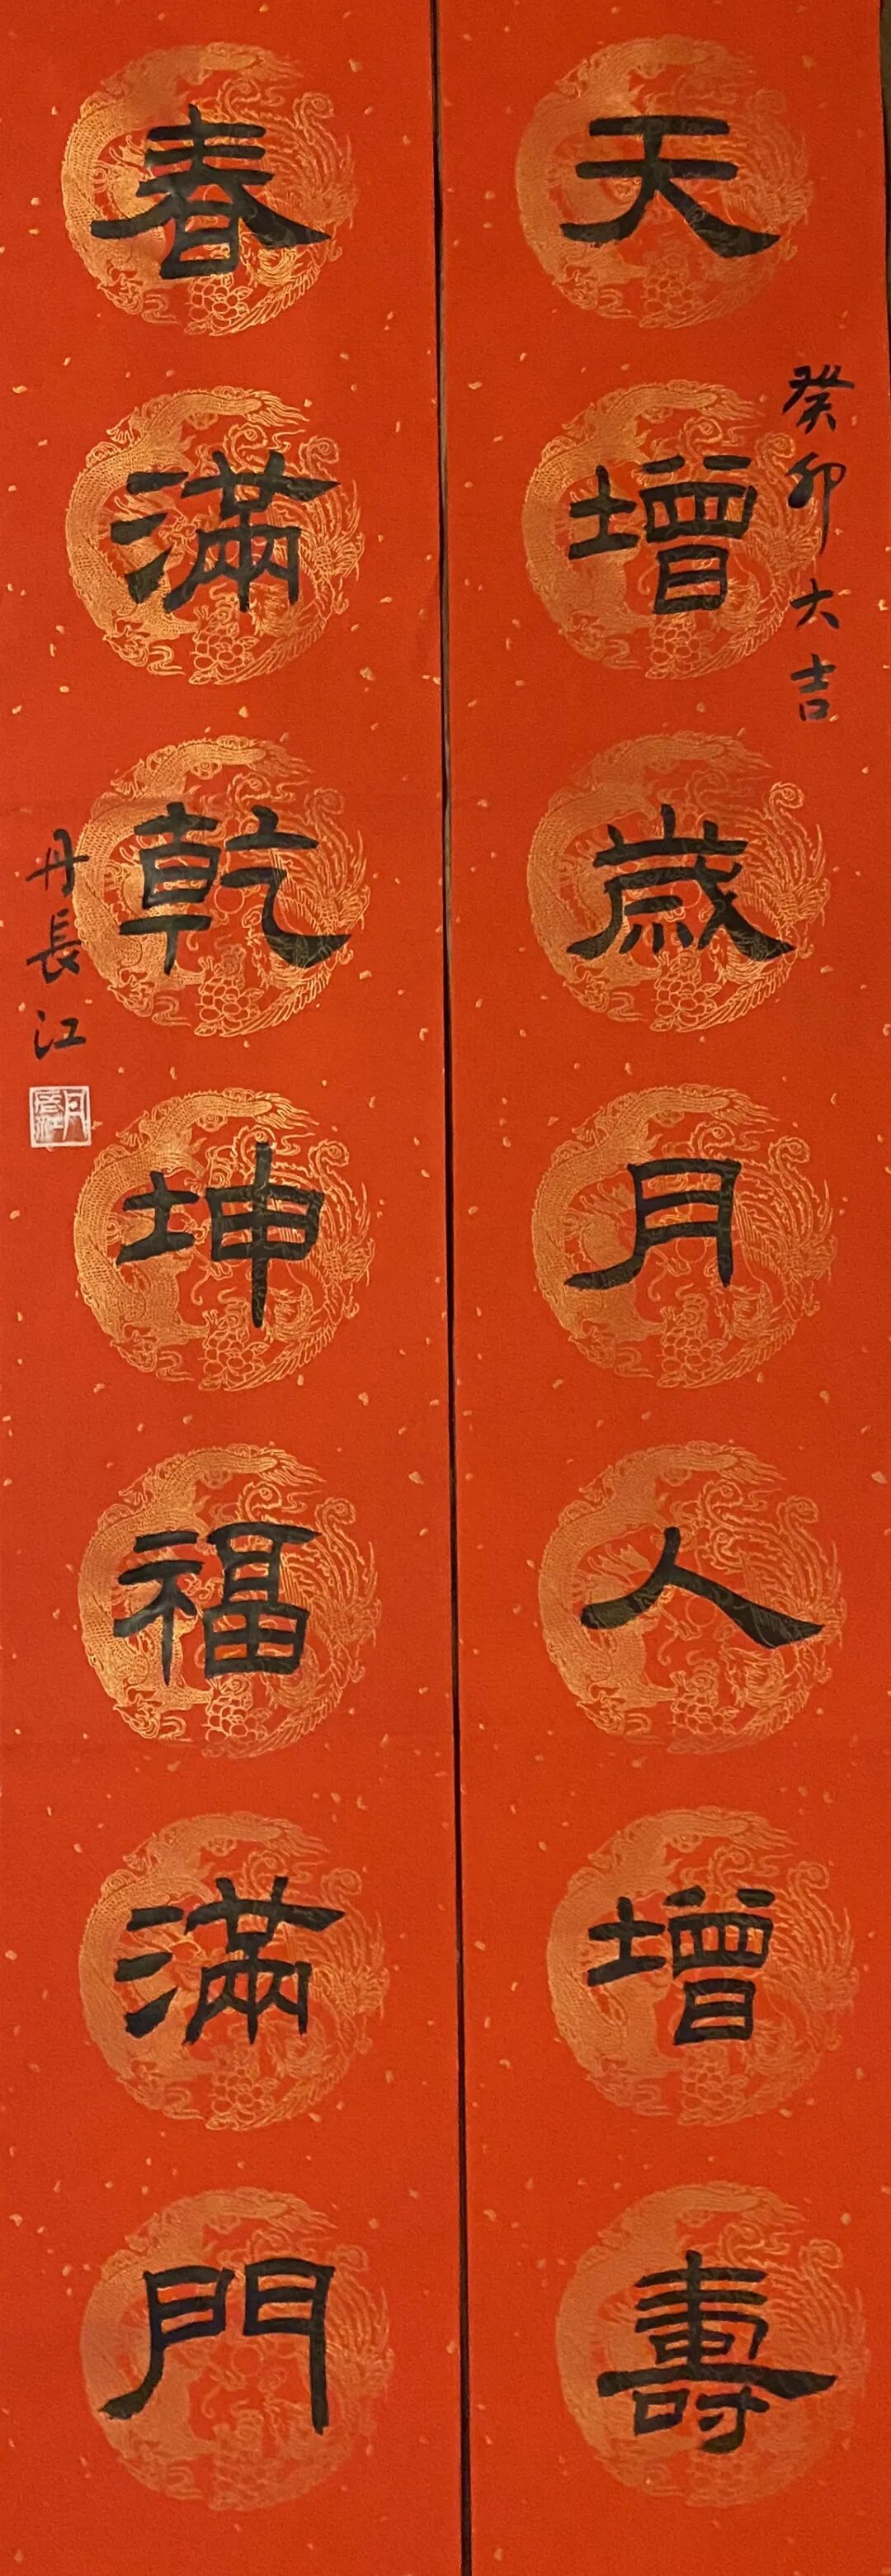 天增歲月人增壽
癸卯大吉
春滿乾坤福滿門
丹長江